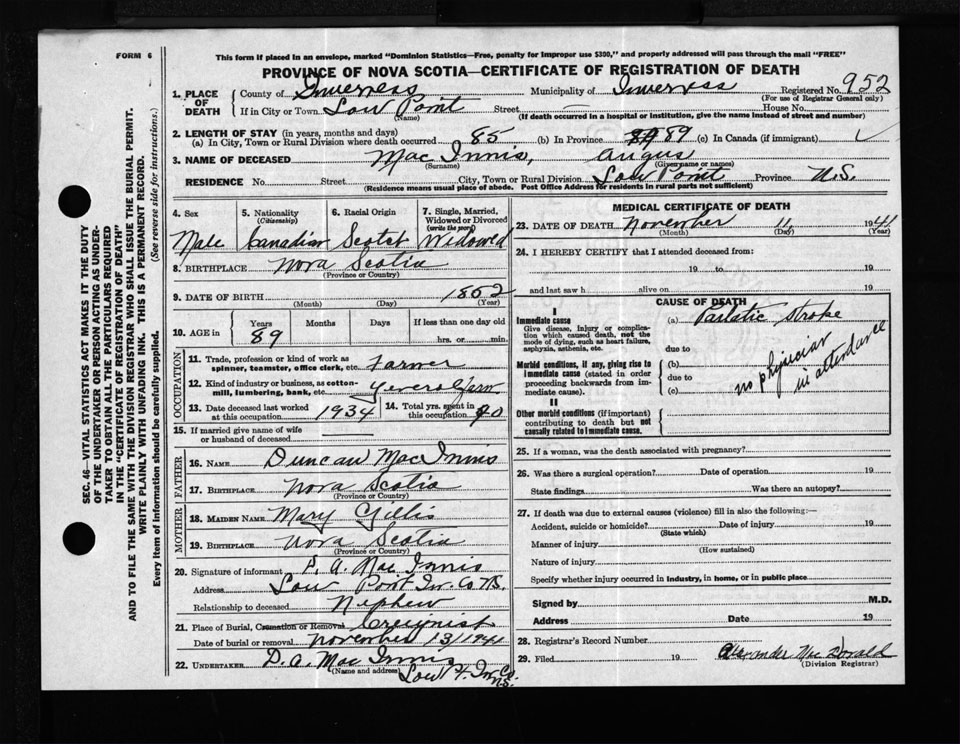 FORM 6
This form if placed in an envelope, marked "Dominion Statistics—Free, penalty for improper use $300," and properly addressed will pass through the mail "FREE"
PROVINCE OF NOVA SCOTIA—CERTIFICATE OF REGISTRATION OF DEATH
1. PLACE OF DEATH County of Inverness Municipality of Inverness Registered No. 952
(For use of Registrar General only)
If in City or Town Low Point (Name) Street — House No.
(If death occurred in a hospital or institution, give the name instead of street and number)
2. LENGTH OF STAY (in years, months and days)
(a) In City, Town or Rural Division where death occurred 85 (b) In Province 89 (c) In Canada (if immigrant)
3. NAME OF DECEASED Mac Innis, Angus
(Surname) (Given name or names)
RESIDENCE No. Street City, Town or Rural Division Low Point Province N.S.
(Residence means usual place of abode. Post Office Address for residents in rural parts not sufficient)
4. Sex Male
5. Nationality (Citizenship) Canadian
6. Racial Origin Scotch
7. Single, Married, Widowed or Divorced (write the word) Widowed
8. BIRTHPLACE Nova Scotia
(Province or Country)
9. DATE OF BIRTH 1852
(Month) (Day) (Year)
10. AGE in Years 89 Months Days If less than one day old hrs. or min.
OCCUPATION
11. Trade, profession or kind of work as spinner, teamster, office clerk, etc. Farmer
12. Kind of industry or business, as cotton-mill, lumbering, bank, etc. General Farm
13. Date deceased last worked at this occupation 1934
14. Total yrs. spent in this occupation 70
15. If married give name of wife or husband of deceased
FATHER
16. Name Duncan MacInnis
17. Birthplace Nova Scotia
(Province or Country)
MOTHER
18. Maiden Name Mary Gillis
19. Birthplace Nova Scotia
(Province or Country)
20. Signature of informant D. A. Mac Innis
Address Low Point In. Co. N.S.
Relationship to deceased Nephew
21. Place of Burial, Cremation or Removal Creignish
Date of burial or removal November 13/1941
22. UNDERTAKER D. A. Mac Innis
(Name and address) Low Pt. In. Co. N.S.
MEDICAL CERTIFICATE OF DEATH
23. DATE OF DEATH November 11, 1941
(Month) (Day) (Year)
24. I HEREBY CERTIFY that I attended deceased from:
19 to 19
and last saw h alive on 19
CAUSE OF DEATH
I
Immediate cause
Give disease, injury or complication which caused death, not the mode of dying, such as heart failure, asphyxia, asthenia, etc.
(a) Stroke
due to
Morbid conditions, if any, giving rise to immediate cause (stated in order proceeding backwards from immediate cause).
(b)
due to
(c)
no physician in attendance
II
Other morbid conditions (if important) contributing to death but not causally related to immediate cause.
25. If a woman, was the death associated with pregnancy?
26. Was there a surgical operation? Date of operation 19
State findings Was there an autopsy?
27. If death was due to external causes (violence) fill in also the following:—
Accident, suicide or homicide? Date of injury 19
(State which)
Manner of injury
(How sustained)
Nature of injury
Specify whether injury occurred in industry, in home, or in public place
Signed by M.D.
Address Date 19
28. Registrar's Record Number
29. Filed 19 Alexander Mac Donald
(Division Registrar)
SEC. 46—VITAL STATISTICS ACT MAKES IT THE DUTY
OF THE UNDERTAKER OR PERSON ACTING AS UNDER-
TAKER TO OBTAIN ALL THE PARTICULARS REQUIRED
IN THE "CERTIFICATE OF REGISTRATION OF DEATH"
AND TO FILE THE SAME WITH THE DIVISION REGISTRAR WHO SHALL ISSUE THE BURIAL PERMIT.
WRITE PLAINLY WITH UNFADING INK. THIS IS A PERMANENT RECORD.
Every item of information should be carefully supplied. (See reverse side for instructions.)